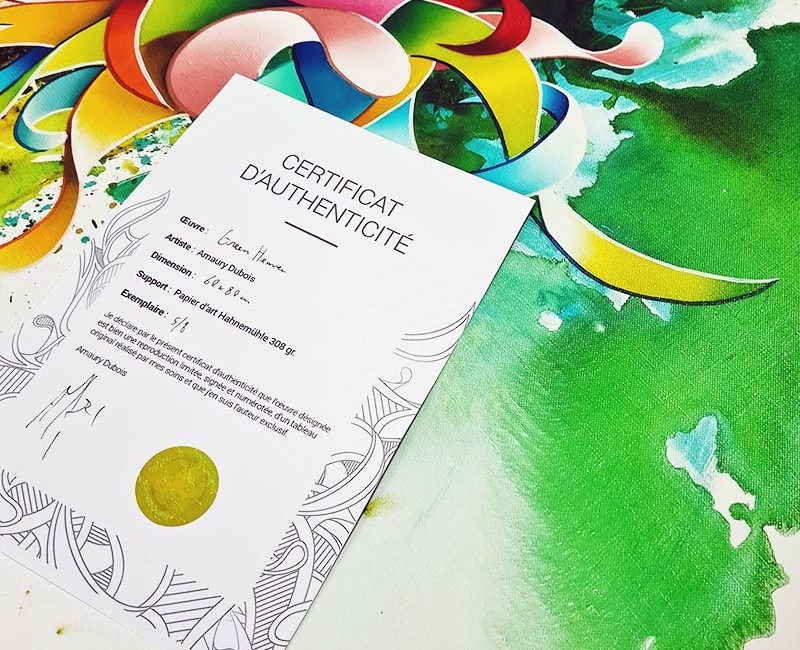 CERTIFICAT
D'AUTHENTICITÉ
Œuvre : Green Heaven
Artiste : Amaury Dubois
Dimension : 60 x 80 cm
Support : Papier d'art Hahnemühle 308 gr.
Exemplaire : 5/8
Je déclare par le présent certificat d'authenticité que l'œuvre désignée
est bien une reproduction limitée, signée et numérotée, d'un tableau
original réalisé par mes soins et que j'en suis l'auteur exclusif.
Amaury Dubois